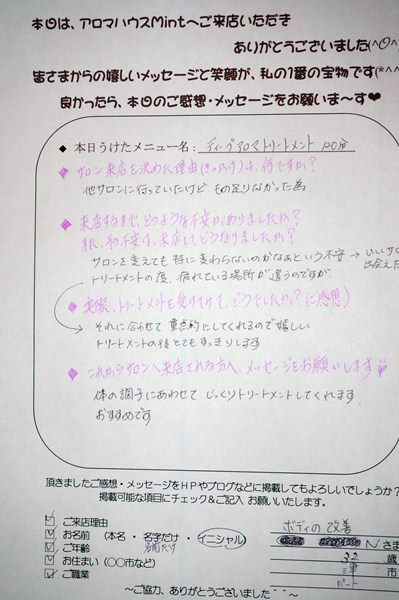 本日は、アロマハウスMintへご来店いただき
ありがとうございました(^O^)
皆さまからの嬉しいメッセージと笑顔が、私の1番の宝物です(*^^
良かったら、本日のご感想・メッセージをお願いま〜す❤
◆ 本日うけたメニュー名: ディープアロマトリートメント 120分
◆ サロン来店を決めた理由(きっかけ)は、何ですか?
他サロンに行っていたけど もの足りなかった為
◆ 来店するまで、どのような不安がありましたか?
また、その不安は、来店してどうなりましたか?
サロンを変えても特に変わらないのかなぁという不安 → いいサロ
出会えた
トリートメントの度、疲れている場所が違うのですが
◆ 実際、トリートメントを受けて、どうでしたか?(ご感想)
それに合わせて 重点的にしてくれるので嬉しい
トリートメントの後とてもすっきりします
◆ これからサロンへ来店される方へ、メッセージをお願いします
体の調子にあわせて じっくりトリートメントしてくれます
おすすめです
頂きましたご感想・メッセージをHPやブログなどに掲載してもよろしいでしょうか?
掲載可能な項目にチェック&ご記入 お願いいたします。
ご来店理由 ボディの改善
お名前 (本名・名字だけ・イニシャル) N さま
ご年齢 32 歳
お住まい (〇〇市など) 三津 市
ご職業 パート
〜ご協力、ありがとうございました^ ^〜